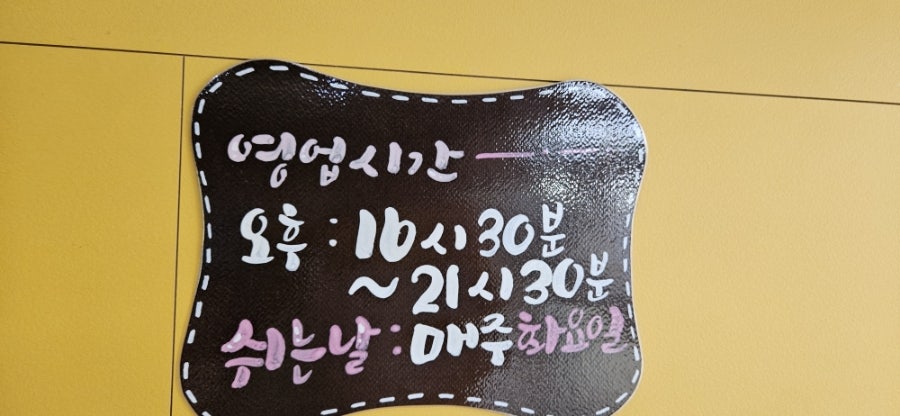 영업시간
오후 : 10시 30분
~ 21시 30분
쉬는날 : 매주 화요일